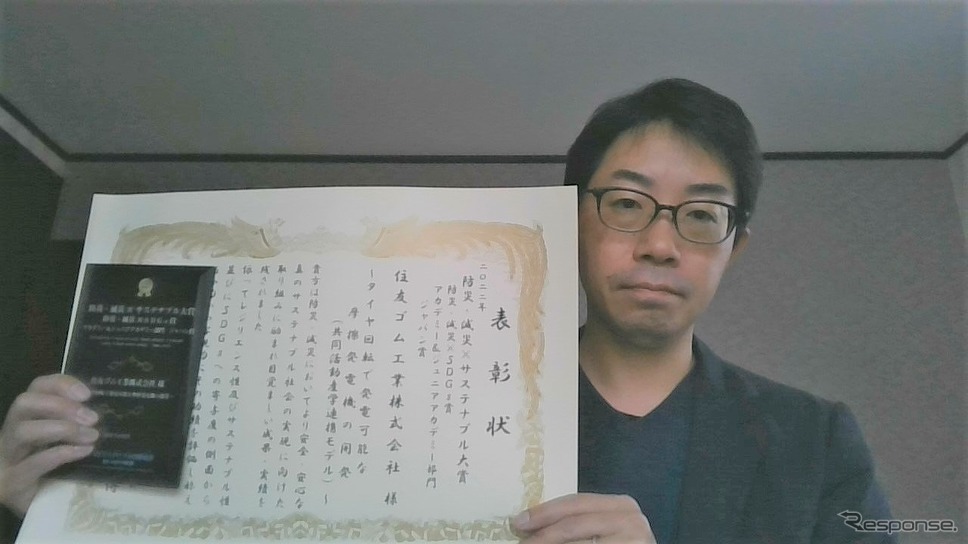 表彰状
二〇二二年
防災・減災×サステナブル大賞
防災・減災×SDGs賞
アカデミー&ジュニアアカデミー部門
ジャパン賞
住友ゴム工業株式会社 様
～タイヤ回転で発電可能な
摩擦発電機の開発
(共同活動産学連携モデル)～
貴方は防災・減災においてより安全・安心な
真のサステナブル社会の実現に向けた
取り組みに励まれ目覚ましい成果・実績を
残されました
依ってレジリエンス性及びサステナブル性
並びにSDGsへの寄与度の側面から
の功績を評価し称え
防災・減災×サステナブル大賞
防災・減災×SDGs賞
住友ゴム工業株式会社 様
Response.